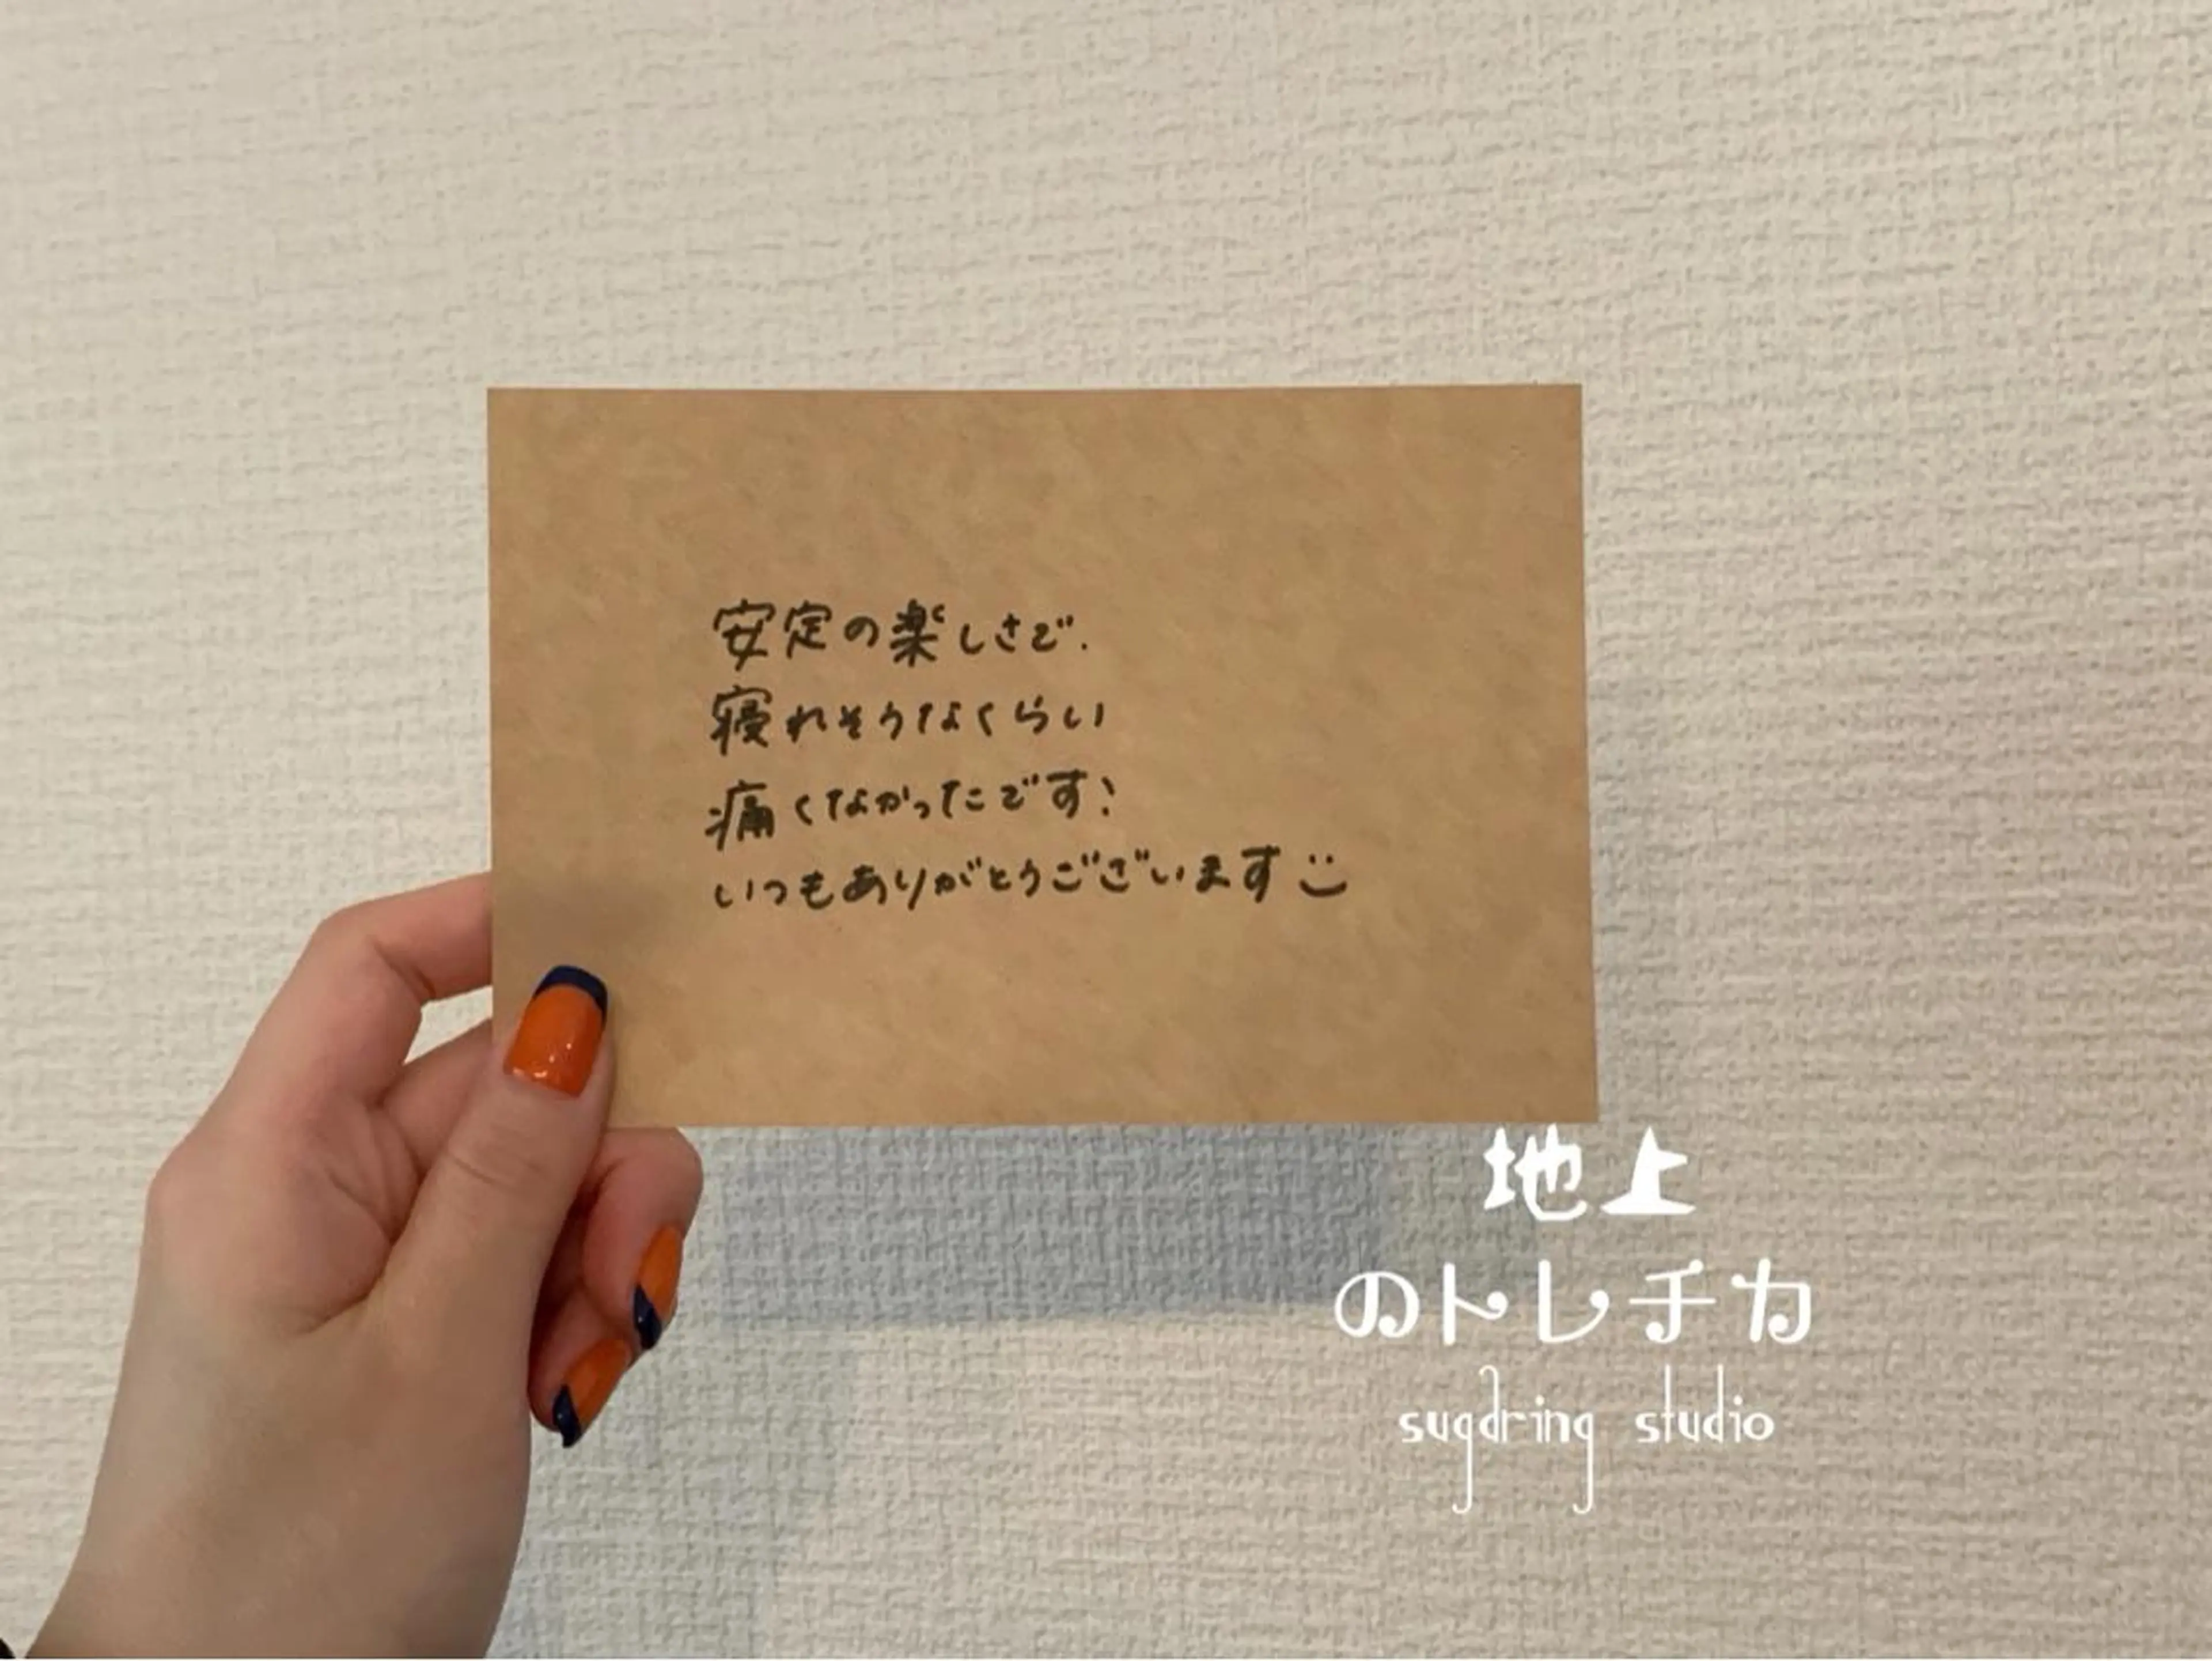 安定の楽しさで.
寝れそうなくらい
痛くなかったです!
いつもありがとうございます
地上
のトレチカ
sugdring studio